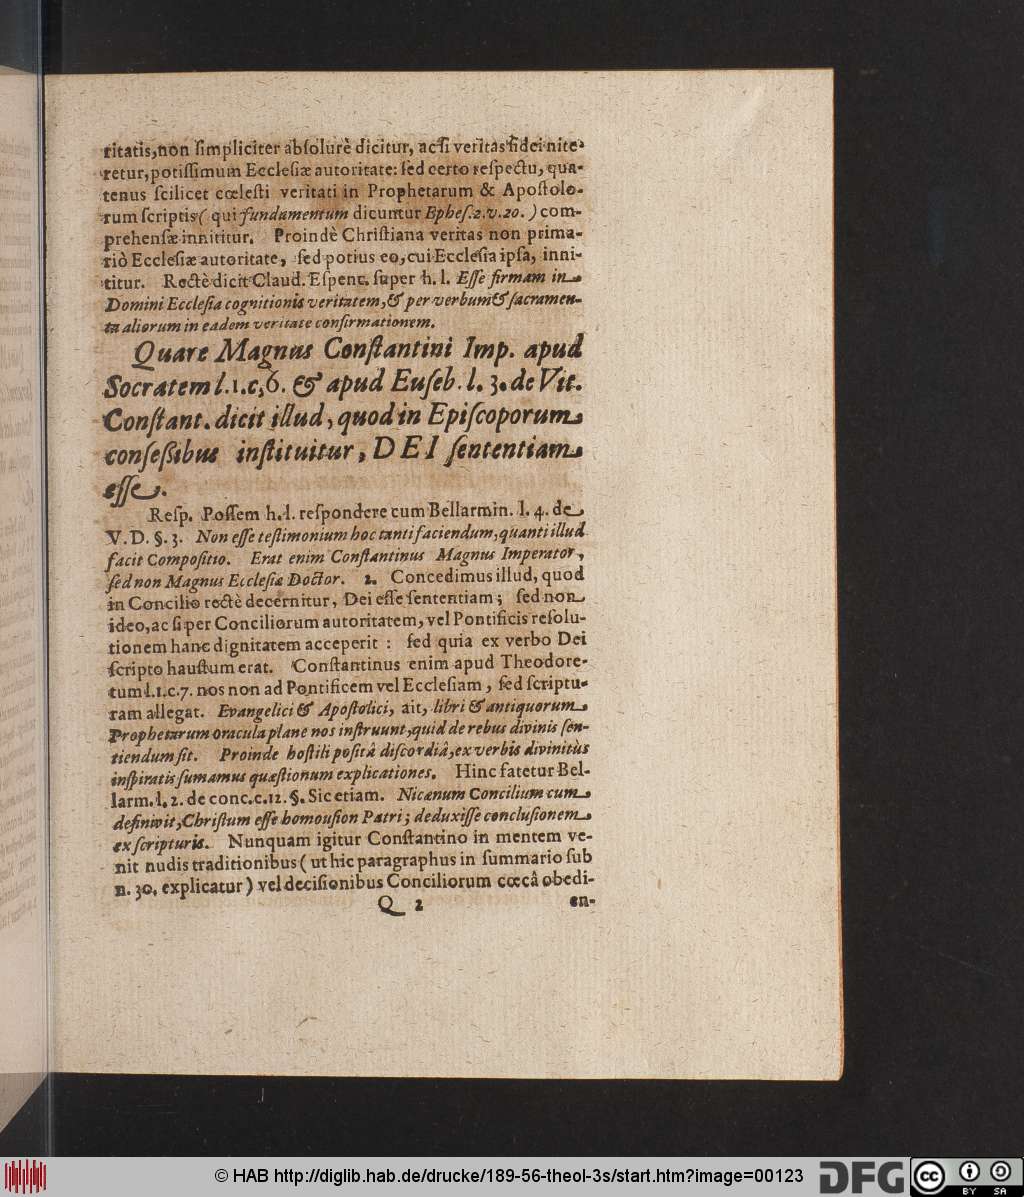 ritatis, non ſimpliciter abſolutè dicitur, acſi veritas fidei nite-
retur, potiſſimum Eccleſiæ autoritate: ſed certo reſpectu, qua-
tenus ſcilicet cœleſti veritati in Prophetarum & Apoſtolo-
rum ſcriptis ( qui fundamentum dicuntur Epheſ. 2. v. 20. ) com-
prehenſæ innititur. Proindè Chriſtiana veritas non prima-
riò Eccleſiæ autoritate, ſed potius eo, cui Eccleſia ipſa, inni-
titur. Rectè dicit Claud. Eſpenc. ſuper h. l. Eſſe firmam in
Domini Eccleſia cognitionis veritatem, & per verbum & ſacramen-
ta aliorum in eadem veritate confirmationem.
Quare Magnus Conſtantini Imp. apud
Socratem l. 1. c, 6. & apud Euſeb. l. 3. de Vit.
Conſtant. dicit illud, quod in Epiſcoporum
conſeſsibus inſtituitur, DEI ſententiam
eſſe.
Reſp. Poſſem h. l. reſpondere cum Bellarmin. l. 4. de
V. D. §. 3. Non eſſe teſtimonium hoc tanti faciendum, quanti illud
facit Compoſitio. Erat enim Conſtantinus Magnus Imperator,
ſed non Magnus Eccleſiæ Doctor. 2. Concedimus illud, quod
in Concilio rectè decernitur, Dei eſſe ſententiam; ſed non
ideo, ac ſi per Conciliorum autoritatem, vel Pontificis reſolu-
tionem hanc dignitatem acceperit : ſed quia ex verbo Dei
ſcripto hauſtum erat. Conſtantinus enim apud Theodore-
tum l. 1. c. 7. nos non ad Pontificem vel Eccleſiam, ſed ſcriptu-
ram allegat. Evangelici & Apoſtolici, ait, libri & antiquorum
Prophetarum oracula plane nos inſtruunt, quid de rebus divinis ſen-
tiendum ſit. Proinde hoſtili poſitâ diſcordiâ, ex verbis divinitùs
inſpiratis ſumamus quæſtionum explicationes. Hinc fatetur Bel-
larm. l. 2. de conc. c. 12. §. Sic etiam. Nicænum Concilium cum
definivit, Chriſtum eſſe homouſion Patri; deduxiſſe concluſionem
ex ſcripturis. Nunquam igitur Conſtantino in mentem ve-
nit nudis traditionibus ( ut hic paragraphus in ſummario ſub
n. 30. explicatur ) vel deciſionibus Conciliorum cœcâ obedi-
Q 2 en-
© HAB http://diglib.hab.de/drucke/189-56-theol-3s/start.htm?image=00123
DFG
cc BY SA